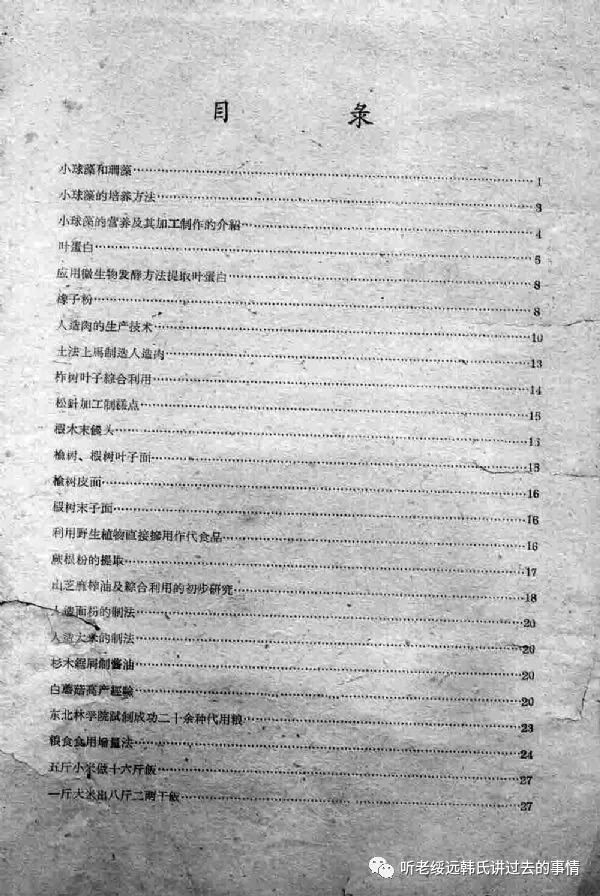 目 录
小球藻和珊藻 1
小球藻的培养方法 3
小球藻的营养及其加工制作的介紹 4
叶蛋白 6
应用微生物发酵方法提取叶蛋白 8
橡子粉 8
人造肉的生产技术 10
土法上馬制造人造肉 13
柞树叶子綜合利用 14
松針加工制糕点 15
椴木末饅头 15
榆树、椴树叶子面 15
榆树皮面 16
椴树末子面 16
利用野生植物直接摻用作代食品 16
蕨根粉的提取 17
山芝麻榨油及綜合利用的初步研究 18
人造面粉的制法 20
人造大米的制法 20
杉木鋸屑制醬油 20
白蘑菇高产經驗 20
东北林学院試制成功二十余种代用粮 23
粮食食用增量法 24
五斤小米做十六斤飯 27
一斤大米出八斤二兩干飯 27
听老绥远韩氏讲过去的事情